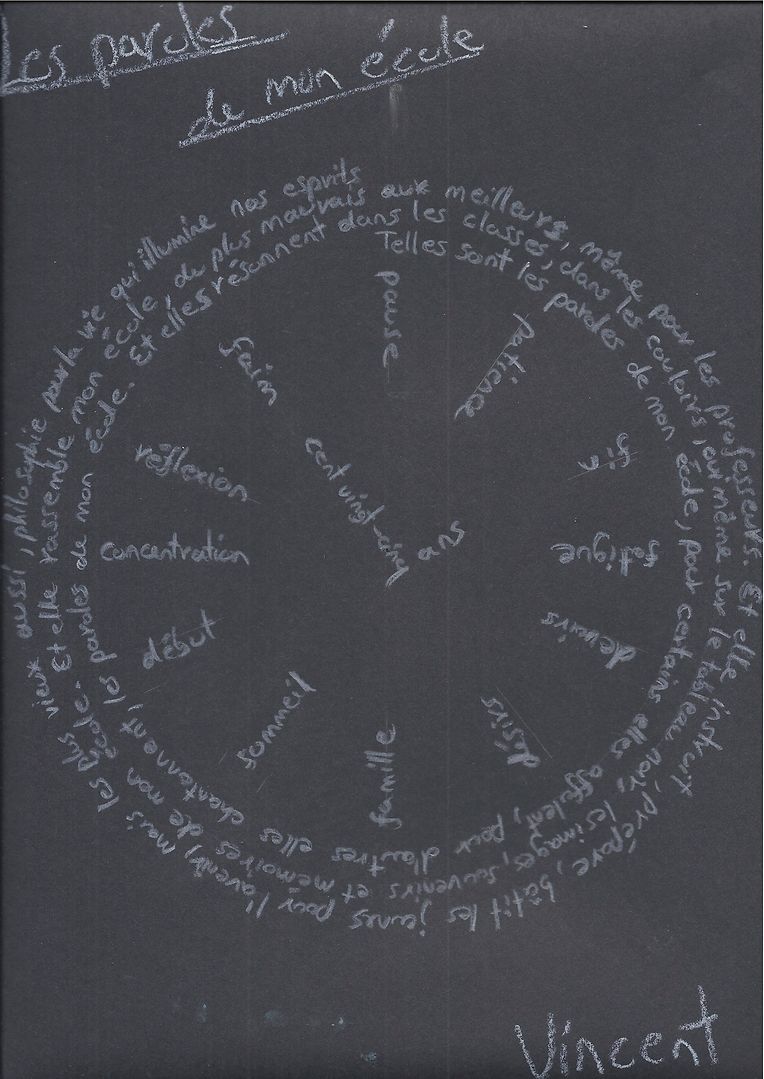 Les paroles
de mon école
Telles sont les paroles de mon école, pour certains elles affolent, pour d'autres elles chantonnent, les paroles de mon école. Et elles résonnent dans les classes, dans les couloirs, ou même sur le tableau noir, les images, souvenirs et mémoires de mon école. Et elle rassemble mon école, du plus mauvais aux meilleurs, même pour les professeurs. Et elle instruit, prépare, bâtit les jeunes pour l'avenir, mais les plus vieux aussi, philosophie pour la vie qui illumine nos esprits
pause
patience
fin
fatigue
devoirs
désirs
famille
sommeil
début
concentration
réflexion
faim
cent vingt-cinq
ans
Vincent